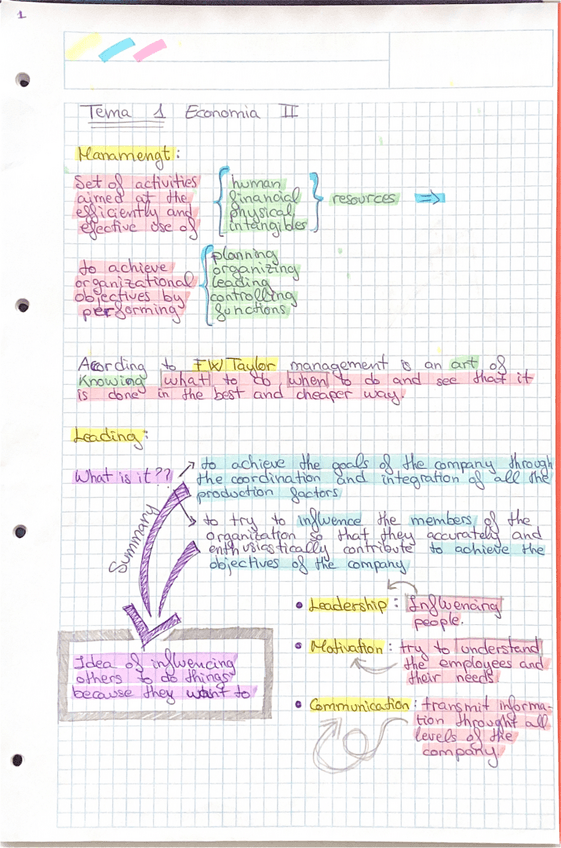 1
Tema 1 Economia II
Manamengt:
Set of activities
aimed at the
efficiently and
effective use of
human
financial
physical
intangibles
resources ⇒
to achieve
organizational
objectives by
performing
planning
organizing
leading
controlling
functions
Acording to FW Taylor management is an art of
Knowing what to do, when to do and see that it
is done in the best and cheaper way.
Leading:
What is it??
to achieve the goals of the company through
the coordination and integration of all the
production factors
to try to influence the members of the
organization so that they accurately and
enthusiastically contribute to achieve the
objectives of the company
Summary
Idea of influencing
others to do things
because they want to
• Leadership: Influencing
people.
• Motivation: try to understand
the employees and
their needs
• Communication: transmit informa-
tion throught all
levels of the
company.